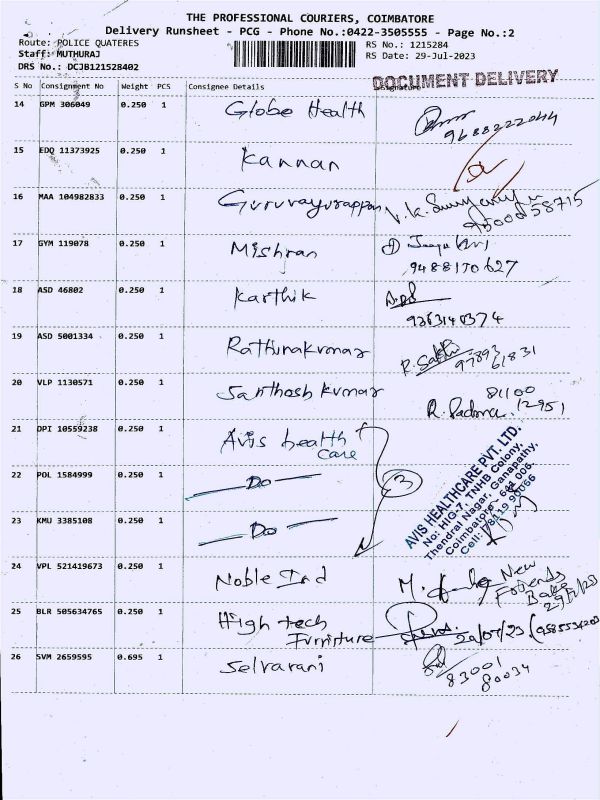 THE PROFESSIONAL COURIERS, COIMBATORE
Delivery Runsheet - PCG - Phone No.:0422-3505555 - Page No.:2
Route: POLICE QUATERES RS No.: 1215284
Staff: MUTHURAJ RS Date: 29-Jul-2023
DRS No.: DCJB121528402
DOCUMENT DELIVERY
S No Consignment No Weight PCS Consignee Details Signature
14 GPM 306049 0.250 1 Globe Health
9688222044
15 EDQ 11373925 0.250 1 Kannan
16 MAA 104982833 0.250 1 Guruvayurappan V.K.
17 GYM 119078 0.250 1 Mishran
9488170627
18 ASD 46802 0.250 1 Karthik
9263140374
19 ASD 5001334 0.250 1 Rathinakumar R. Sakthi 97893
61831
20 VLP 1130571 0.250 1 Santhosh kumar 81100
R. Padma. 12951
21 DPI 10559238 0.250 1 Avis health
care
22 POL 1584999 0.250 1 — Do — 3
23 KMU 3385108 0.250 1 — Do —
AVIS HEALTHCARE PVT. LTD.
No: HIG-7, TNHB Colony,
Thendral Nagar, Ganapathy,
Coimbatore - 641 006.
Cell: 78119 90066
24 VPL 521419673 0.250 1 Noble Ind M. New
Friends
Bake
29/7/23
25 BLR 505634765 0.250 1 High tech
Furniture 29/07/23
26 SVM 2659595 0.695 1 Selvarani
83001
80034